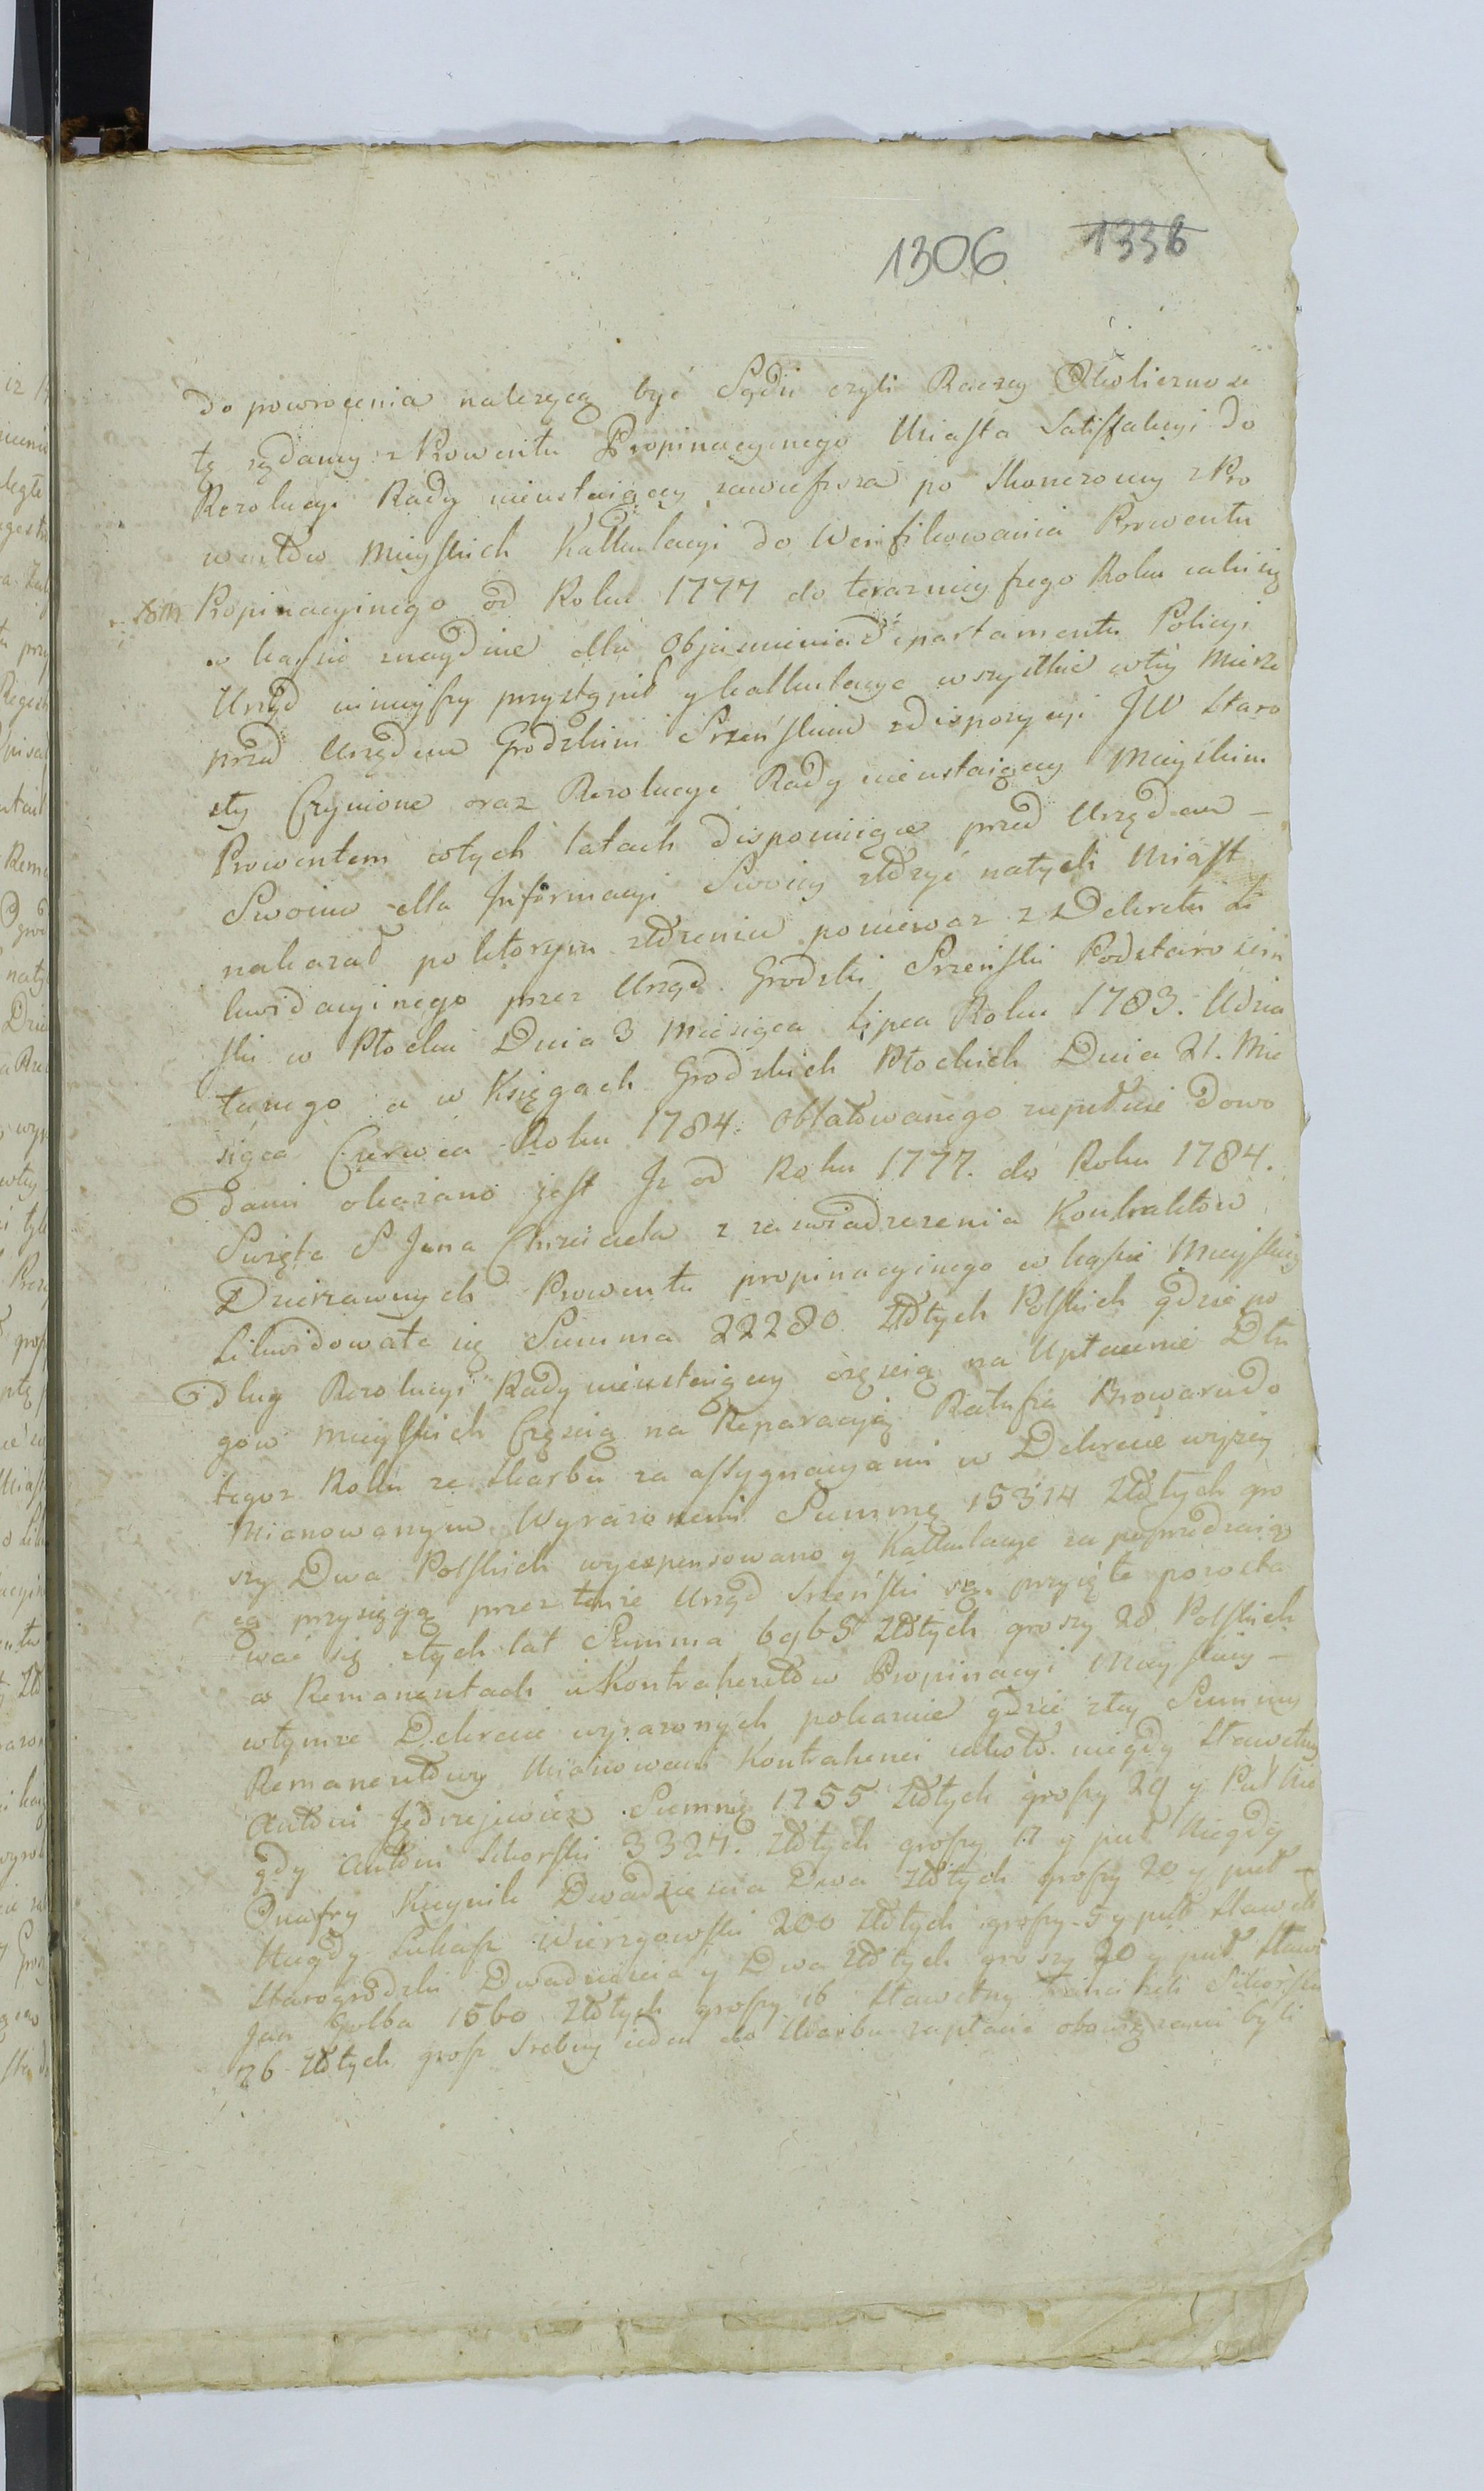 1306 1336
do powrocenia należącą być Sądu czyli Raczey Okolicznosc
tę żądaney z Prowentu Propinacyinego Miasta Satisfakcyi do
Rezolucyi Rady nieustaiącey zawiesza po skonczoney z Pro
wentow Mieyskich Kalkulacyi do Weryfikowania Prowentu
Propinacyinego od Roku 1777 do teraznieyszego Roku
w kassie znaydzie dla Objasnienia Departamentu Policyi
Urząd ninieyszy przystąpił y kalkulacye wszystkie wtey Mierze
przed Urzędem Grodzkim Srzeńskim z dispozycyi JW Staro
sty Czynione oraz Rezolucye Rady nieustaiącey Mieyskim
Prowentem wtych latach disponuiące przed Urzędem
Swoim dla Informacyi Swoiey złożyć natych Miast
nakazał po ktorym złożeniu poniewaz z Dekretu Li
kwidacyinego przez Urząd Grodzki Srzeński Podstarosciń
ski w Płocku Dnia 3 Miesiąca Lipca Roku 1783. Udzia
łanego a w Księgach Grodzkich Płockich Dnia 21. Mie
siąca Czerwca Roku 1784. oblatowanego zupełnie Dowo
dami okazano jest Jz od Roku 1777. do Roku 1784.
Swięta S Jana Chrzciciela z zaswiadczenia Kontraktow
Dzierzawnych Prowentu propinacyinego w kassie Mieyskiey
Likwidowała się Summa 22280 Złotych Polskich gdzie po
Dług Rezolucyi Rady nieustaiącey częscią na Upłacenie Dłu
gow Mieyskich Częscią na Reparacyią Ratusza Browaru do
tegoz Roku ze Skarbu za assygnacyami w Dekrecie wyżey
Mianowanym Wyrażonemi Summę 15314 Złotych gro
szy Dwa Polskich wyexpensowano y Kalkulacye za poprzedzaią
cą przysięgą przez tenże Urząd Srzeński są przyięte pozosta
wać się ztych lat Summa 6965 Złotych groszy 28 Polskich
w Remanentach u Kontrahentow Propinacyi Mieyskiey
wtymże Dekrecie wyrażonych pokazuie gdzie ztey Summy
Remanentowey Mianowani Kontrahenci iakoto niegdy Sławetny
Antoni Jędrzejewicz Summę 1755 Złotych groszy 29 y Puł Nie
gdy Antoni Sikorski 3327. Złotych groszy 17 y puł Niegdy
Onufry Dwadziescia Dwa Złotych groszy 20 y puł
Niegdy Łukasz Wierzgowski 200 Złotych groszy 5 y puł Sławetn
Starogrodzki Dwadziescia y Dwa Złotych groszy 20 y puł Sławe
Jan Gołba 1560 Złotych groszy 16 Sławetny Sikorski
76 Złotych grosz srebny ieden do Skarbu zapłacic obowiązani byli